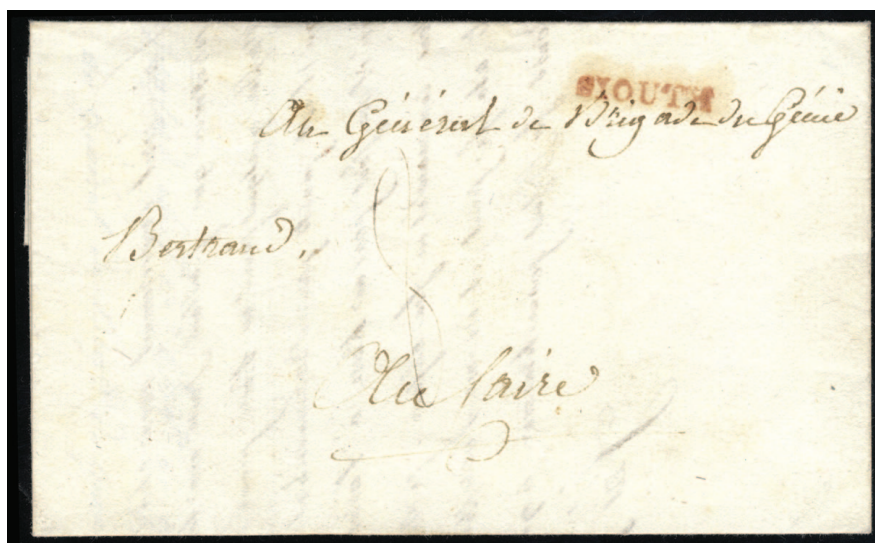 SIOUTH
Au Général de Brigade du Génie
Bertrand.
Au Caire